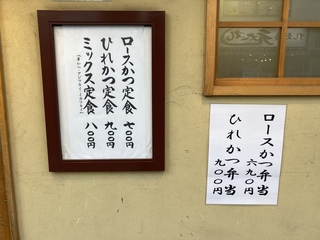 ロースかつ定食 七〇〇円
ひれかつ定食 九〇〇円
ミックス定食 八〇〇円
ロースかつ弁当
六九〇円
ひれかつ弁当
九〇〇円